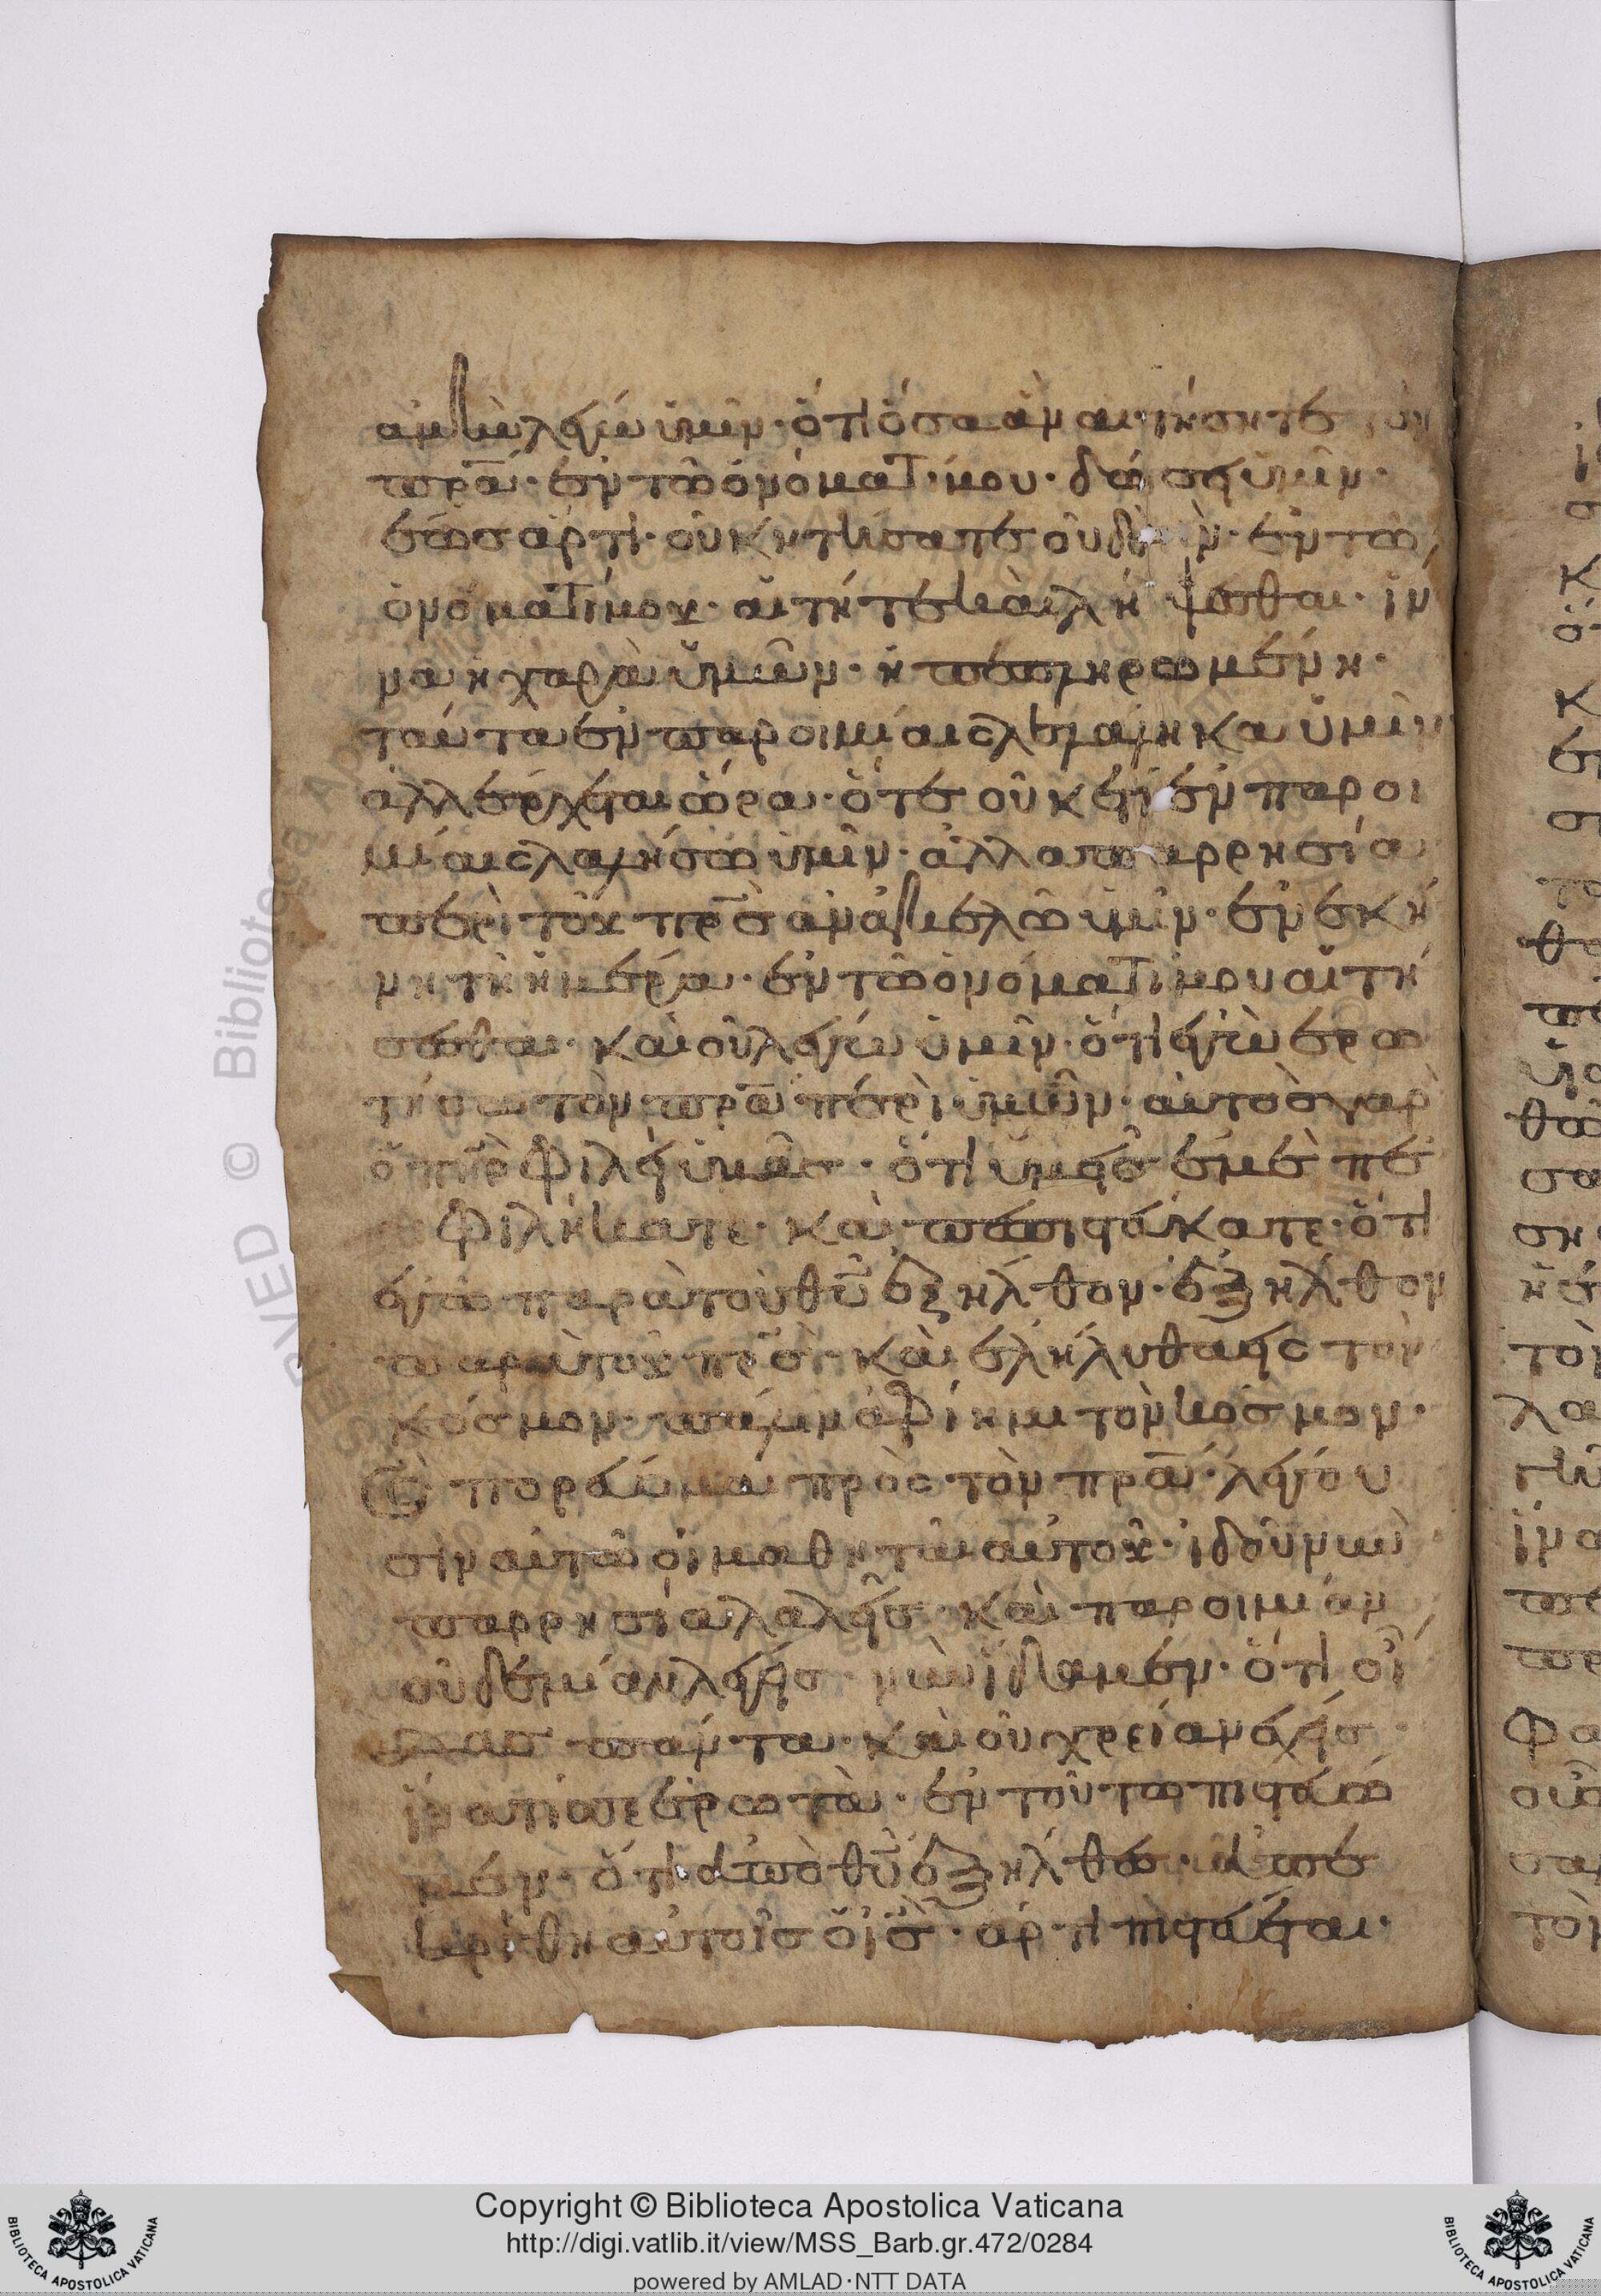 ἀμὴν λέγω ὑμῖν· ὅτι ὅσα ἂν αιτήσητε τὸν
πρα̅· ἐν τῶ ὀνόματί μου· δώσει ὑμῖν·
ἕως ἄρτι· οὐκ ητήσατε οὐδὲν· ἐν τῶ
ὀνόματί μου· αἰτήτε καὶ λήψεσθαι· ἵν
να η χαρὰ ὑμῶν· ἠ πεπληρωμένη·
ταῦτα ἐν παροιμίαις λελάληκα ὑμῖν
ἀλλ έρχεται ὥρα· ὅτε οὐκέτι ἐν παροι
μίαις λαλήσω ὑμῖν· ἀλλα παρρησία
περὶ τοῦ πρ̅ς ἀναγγελῶ ὑμῖν· ἐν ἐκεί
νη τῆ ἡμέρα· ἐν τῶ ὀνόματί μου αἰτή
σεσθαι· καὶ οὐ λέγω ὑμῖν· ὅτι ἐγὼ ἐρω
τήσω τὸν πρα̅ περὶ ὑμῶν· αὐτὸς γαρ
ὁ πη̅ρ φιλεῖ ὑμᾶς· ὅτι ὑμεῖς ἐμὲ πε
φιλήκατε· καὶ πεπιστεύκατε· ὅτι
ἐγὼ παρὰ τοῦ θυ̅ ἐξῆλθον· ἐξῆλθον
παρὰ τοῦ πρ̅ς· καὶ ἐλήλυθα εις τὸν
κόσμον· πάλιν ἀφίημι τὸν κόσμον·
(καὶ) πορεύομαι πρὸς τὸν πρα̅· λέγου
σιν αὐτῶ οἱ μαθηταὶ αὐτοῦ· ἰδοῦ νῦν
παρρησία λαλεῖς· καὶ παροιμίαν
οὐδεμίαν λέγεις· νῦν ἴδαμεν· ὅτι οἶ
δας πάντα· καὶ οὐ χρείαν ἔχεις·
ἵνα τίς σε ἐρωτὰ· ἐν τοῦτω πιστεύω
μεν· ὅτι ἀπὸ θυ̅ ἐξῆλθες· ἀπε
κρίθη αὐτοῖς ὁ ι̅ς· ἄρτι πιστεύεται·
Copyright © Biblioteca Apostolica Vaticana
http://digi.vatlib.it/view/MSS_Barb.gr.472/0284
powered by AMLAD·NTT DATA